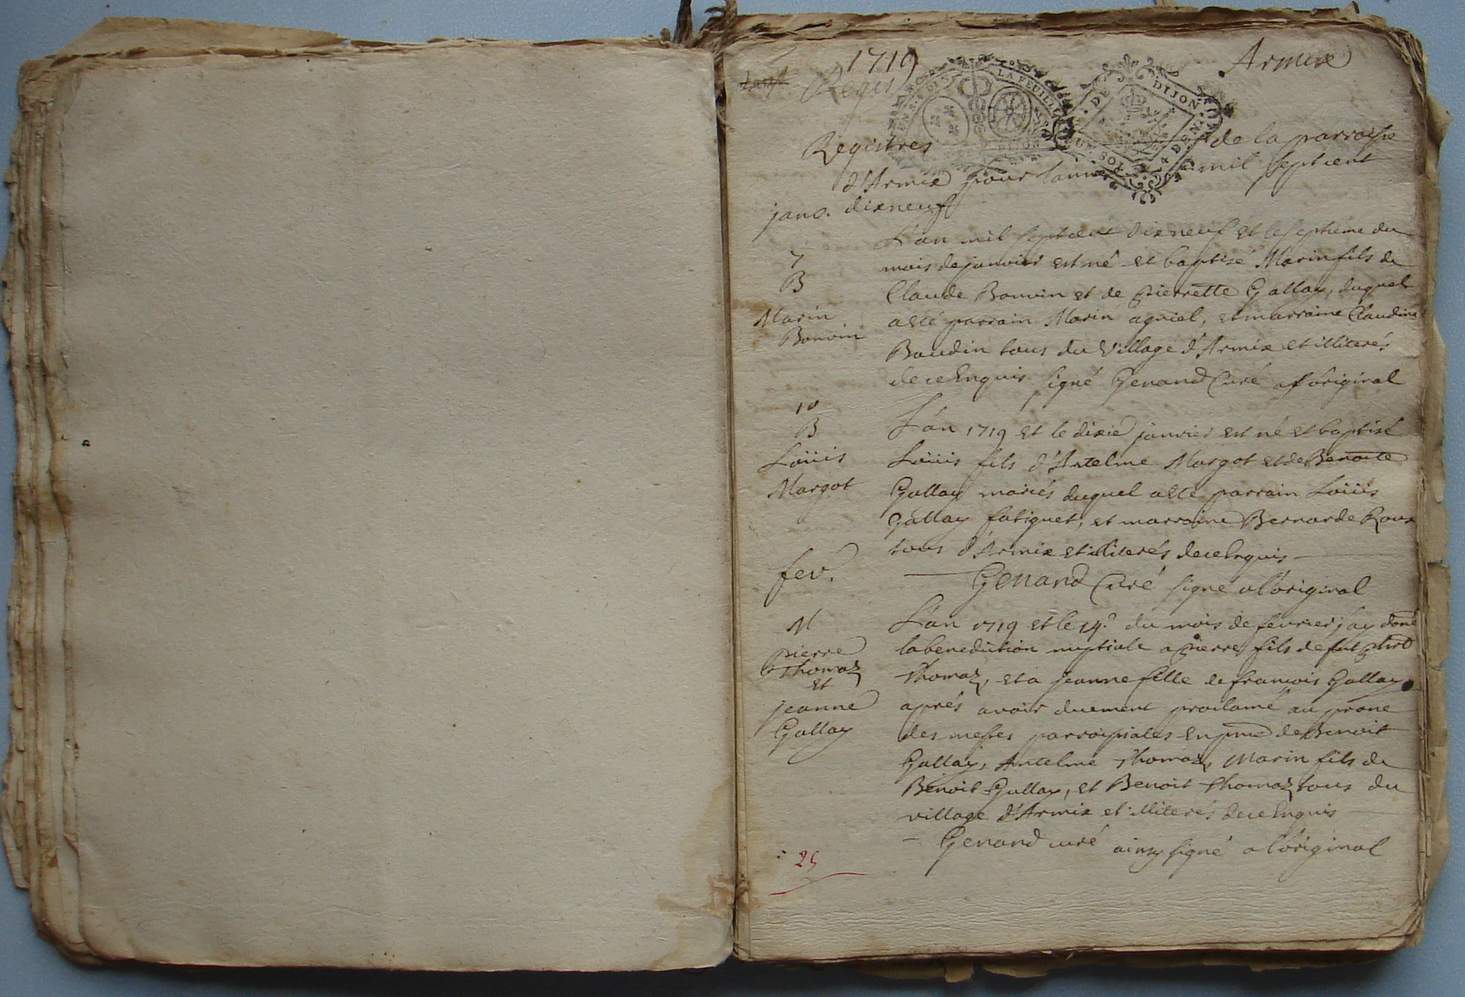 1719
Armix
Regis
GEN. DE DIJON
LA FEUILLE
DE DIJON
UN SOL 4 DEN.
Registres de la parroisse
d'Armix pour lann mil sept cent
janv. dixneuf
L'an mil sept cent dixneuf et le septieme du
7
mois de janvier est né et baptisé Marin fils de
B
Claude Bonvin et de pierrette Gallay, duquel
Marin
a esté parrain Marin agniel, et marraine Claudine
Bonvin
Baudin tous du village d'Armix et illiterés
de ce Enquis signé Genand Curé a l'original
10
B
L'an 1719 et le dixie janvier est né et baptisé
Loüis
Loüis fils d'Antelme Margot et de Benoite
Margot
Gallay mariés duquel a esté parrain Loüis
Gallay fatiguet, et marraine Bernarde Roux
tous d'Armix et illiterés de ce Enquis
fev.
Genand Curé signé a l'original
M
L'an 1719 et le 14e du mois de fevrier j'ay doné
pierre
la benediction nuptiale a pierre fils de fut
Thomaz
Thomaz, et a jeanne fille de francois Gallay
et
jeanne
aprés avoir duement proclamé au prone
Gallay
des messes parroissiales en pnce de Benoit
Gallay, Antelme Thomaz, Marin fils de
Benoit Gallay, et Benoit Thomaz tous du
village d'Armix et illiterés de ce Enquis
Genand curé ainsy signé a l'original
25